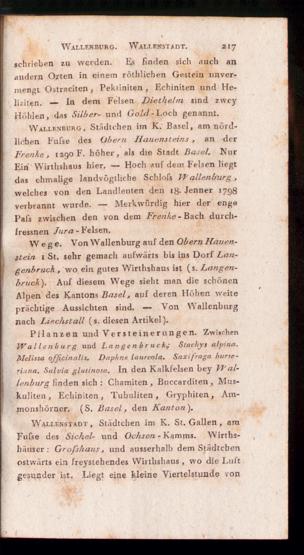 WALLENBURG. WALLENSTADT. 217
schrieben zu werden. Es finden sich auch an
andern Orten in einem röthlichen Gestein unver-
mengt Ostraciten, Pektiniten, Echiniten und He-
liziten. — In dem Felsen Diethelm sind zwey
Höhlen, das Silber- und Gold-Loch genannt.
WALLENBURG, Städtchen im K. Basel, am nörd-
lichen Fuſse des Obern Hauensteins, an der
Frenke, 1290 F. höher, als die Stadt Basel. Nur
Ein Wirthshaus hier. — Hoch auf dem Felsen liegt
das ehmalige landvögtliche Schloſs Wallenburg,
welches von den Landleuten den 18. Jenner 1798
verbrannt wurde. — Merkwürdig hier der enge
Paſs zwischen den von dem Frenke-Bach durch-
fressnen Jura-Felsen.
Wege. Von Wallenburg auf den Obern Hauen-
stein 1 St. sehr gemach aufwärts bis ins Dorf Lan-
genbruck, wo ein gutes Wirthshaus ist (s. Langen-
bruck). Auf diesem Wege sieht man die schönen
Alpen des Kantons Basel, auf deren Höhen weite
prächtige Aussichten sind. — Von Wallenburg
nach Liechstall (s. diesen Artikel).
Pflanzen und Versteinerungen. Zwischen
Wallenburg und Langenbruck; Stachys alpina.
Melissa officinalis. Daphne laureola. Saxifraga burse-
riana. Salvia glutinosa. In den Kalkfelsen bey Wal-
lenburg finden sich: Chamiten, Buccarditen, Mus-
kuliten, Echiniten, Tubuliten, Gryphiten, Am-
monshörner. (S. Basel, den Kanton).
WALLENSTADT, Städtchen im K. St. Gallen, am
Fuſse des Sichel- und Ochsen-Kamms. Wirths-
häuser: Groſshaus, und ausserhalb dem Städtchen
ostwärts ein freystehendes Wirthshaus, wo die Luft
gesunder ist. Liegt eine kleine Viertelstunde von